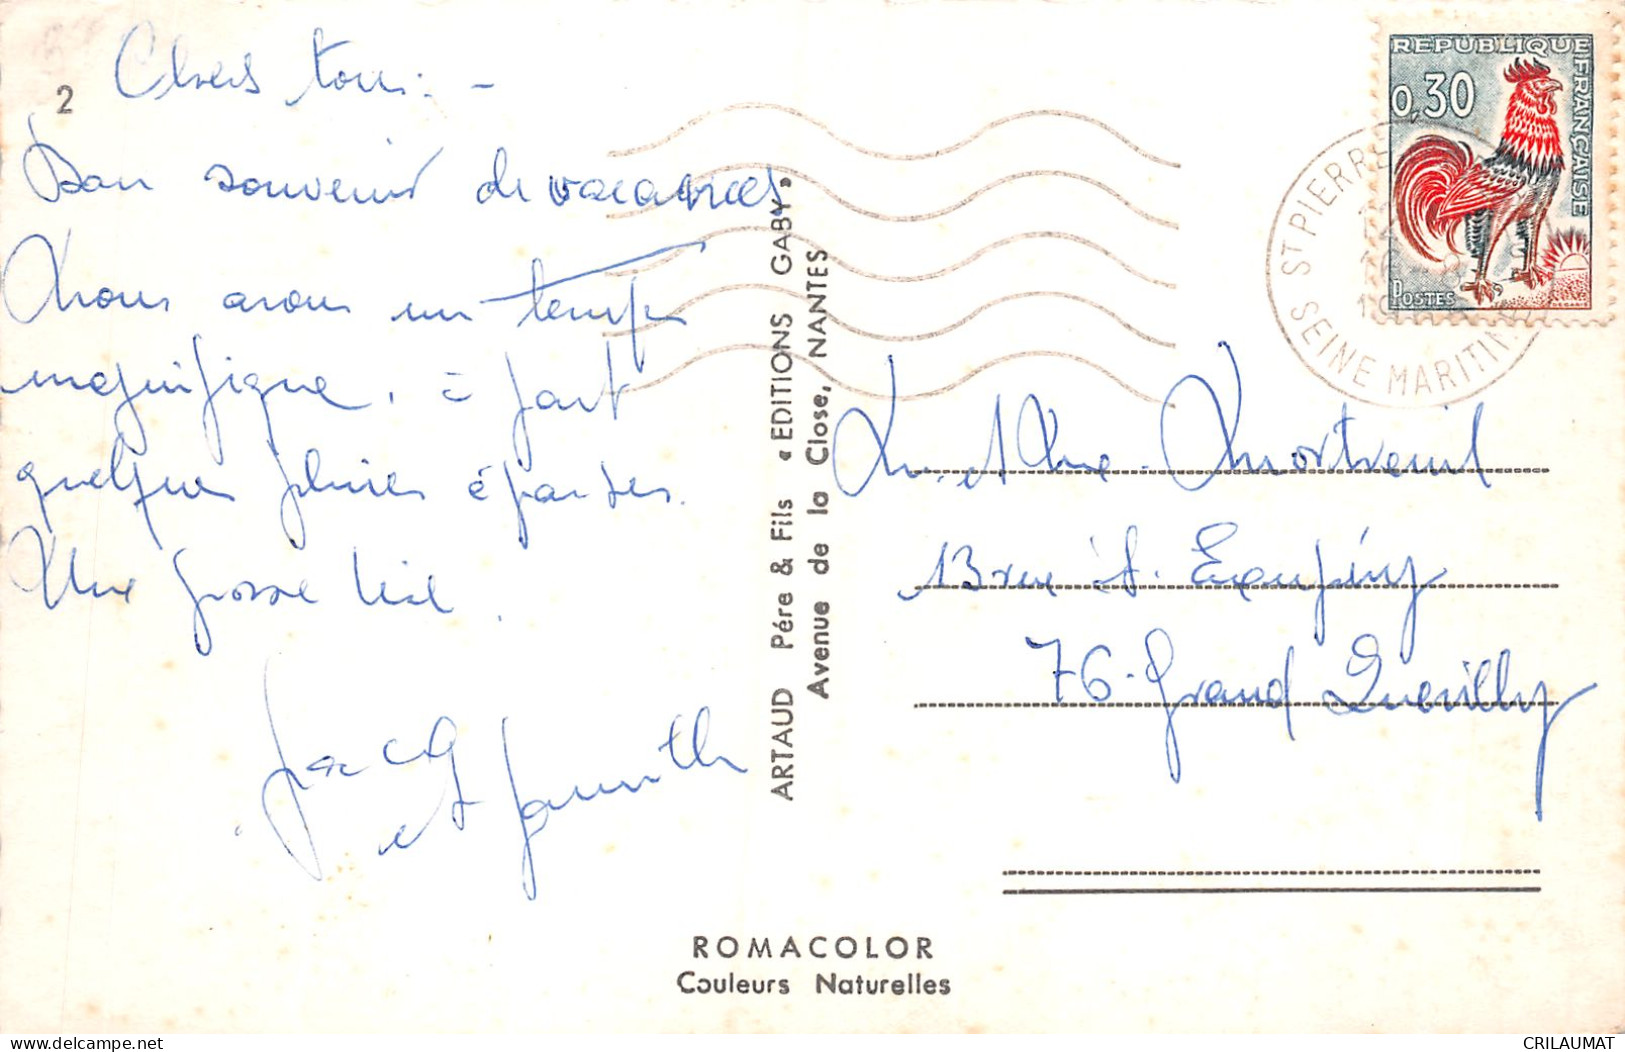 2
Chers tous. -
Bon souvenir de vacances
Nous avons un temps
magnifique, à part
quelques pluies éparses.
Une grosse bise.
Jacq
et famille
ARTAUD Père & Fils « EDITIONS GABY »
Avenue de la Close, NANTES
REPUBLIQUE
FRANÇAISE
0,30
POSTES
ST PIERRE
SEINE MARITIME
M. et Mme Montreuil
13 rue St. Exupéry
76 - Grand Quevilly
ROMACOLOR
Couleurs Naturelles
delcampe.net
CRILAUMAT